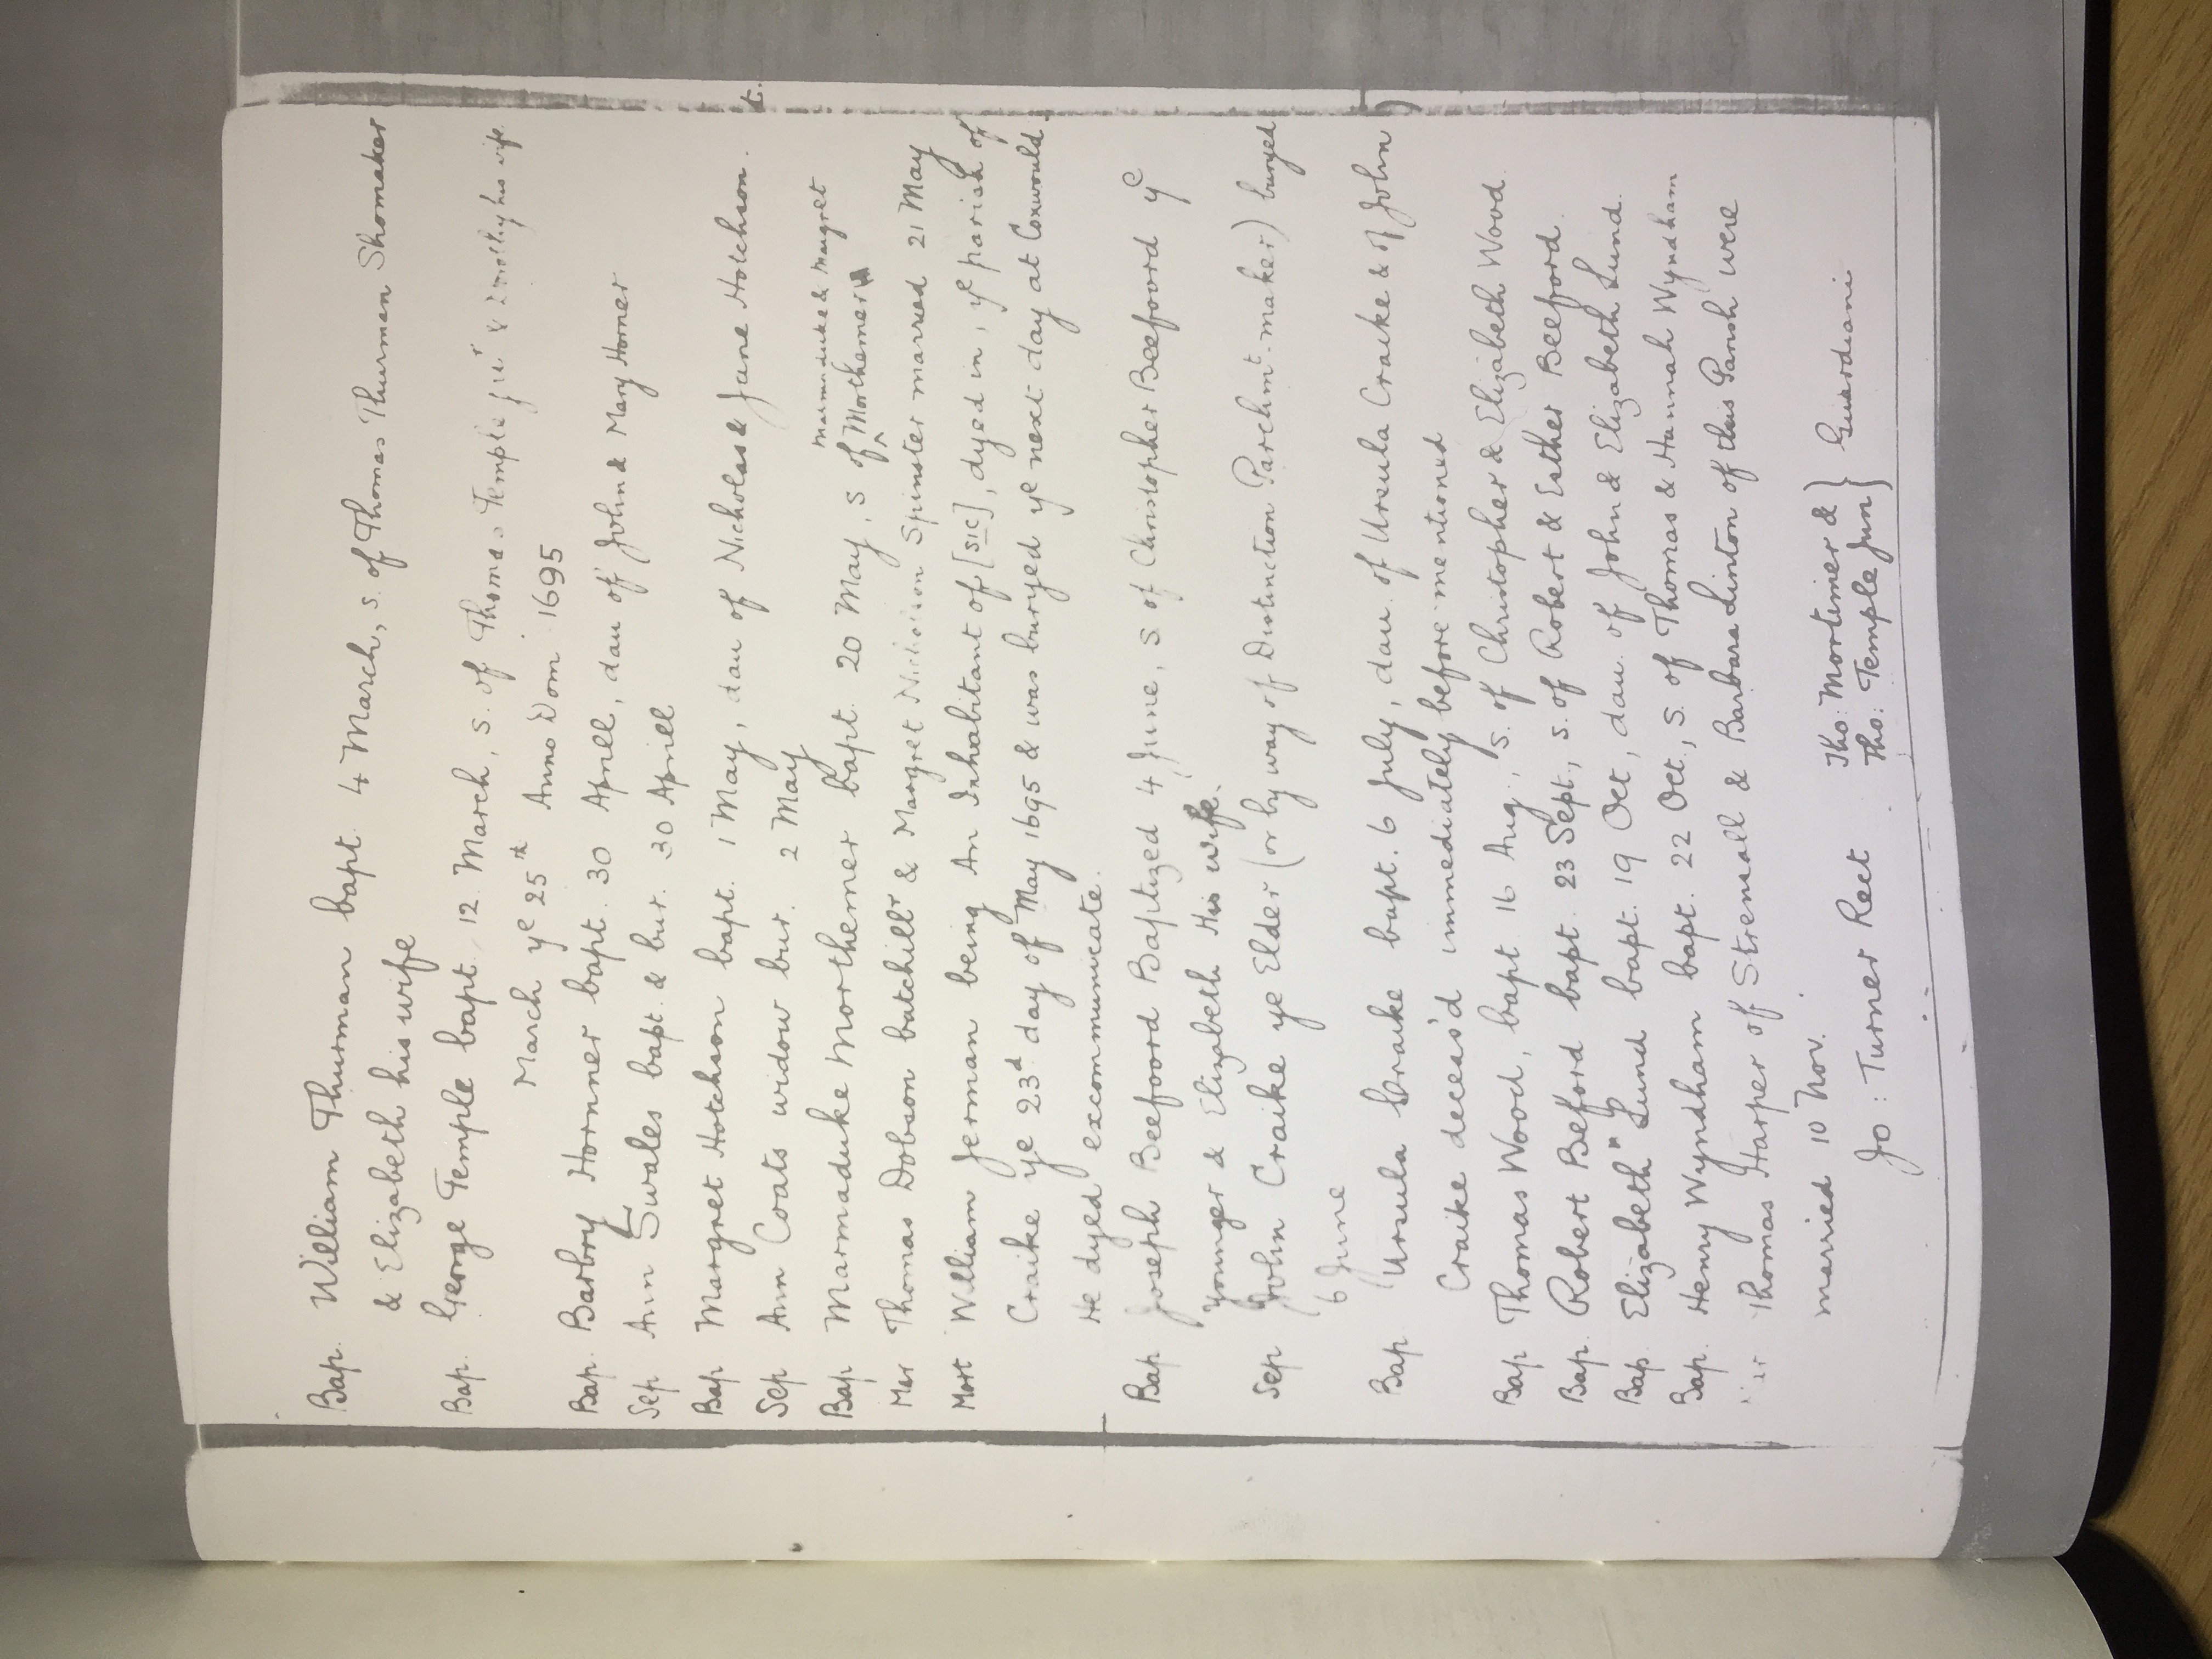 Bap. William Thurman bapt. 4 March, s. of Thomas Thurman Shomaker
& Elizabeth his wife
Bap. George Temple bapt. 12 March, s. of Thomas Temple junr & Dorothy his wife.
March ye 25th Anno Dom 1695
Bap. Barbry Hornner bapt. 30 Aprill, dau of John & Mary Horner
Sep Ann Swales bapt. & bur. 30 Aprill
Bap Margret Hotchson bapt. 1 May, dau of Nicholas & Jane Hotchson.
Sep Ann Coats widow bur. 2 May
Marmaduke & Margret
Bap Marmaduke Morthemer bapt. 20 May, s of ^ Morthemer
Mar Thomas Dobson batchillr & Margret Nicholson Spinster married 21 May
Mort William Jerman being An Inhabitant of [sic], dyed in, ye parish of
Craike ye 23d day of May 1695 & was buryed ye next day at Coxwould.
He dyed excommunicate.
Bap Joseph Beefoord Baptized 4 June, s of Christopher Beefoord ye
younger & Elizabeth His wife.
Sep John Craike ye Elder (or by way of Distinction Parchmt-maker) buryed
6 June
Bap Ursula Craike bapt. 6 July, dau. of Ursula Craike & of John
Craike deceas'd immediately before mentioned
Bap Thomas Wood, bapt 16 Aug, s. of Christopher & Elizabeth Wood.
Bap. Robert Beford bapt. 23 Sept., s. of Robert & Esther Beeford.
Bap. Elizabeth " Lund bapt. 19 Oct, dau. of John & Elizabeth Lund.
Bap. Henry Wyndham bapt. 22 Oct., s. of Thomas & Hannah Wyndham
Thomas Harper of Stremsall & Barbara Linton of this Parish were
married 10 Nov.
Jo: Turner Rect Tho: Mortimer & } Guardiani
Tho: Temple Jun }